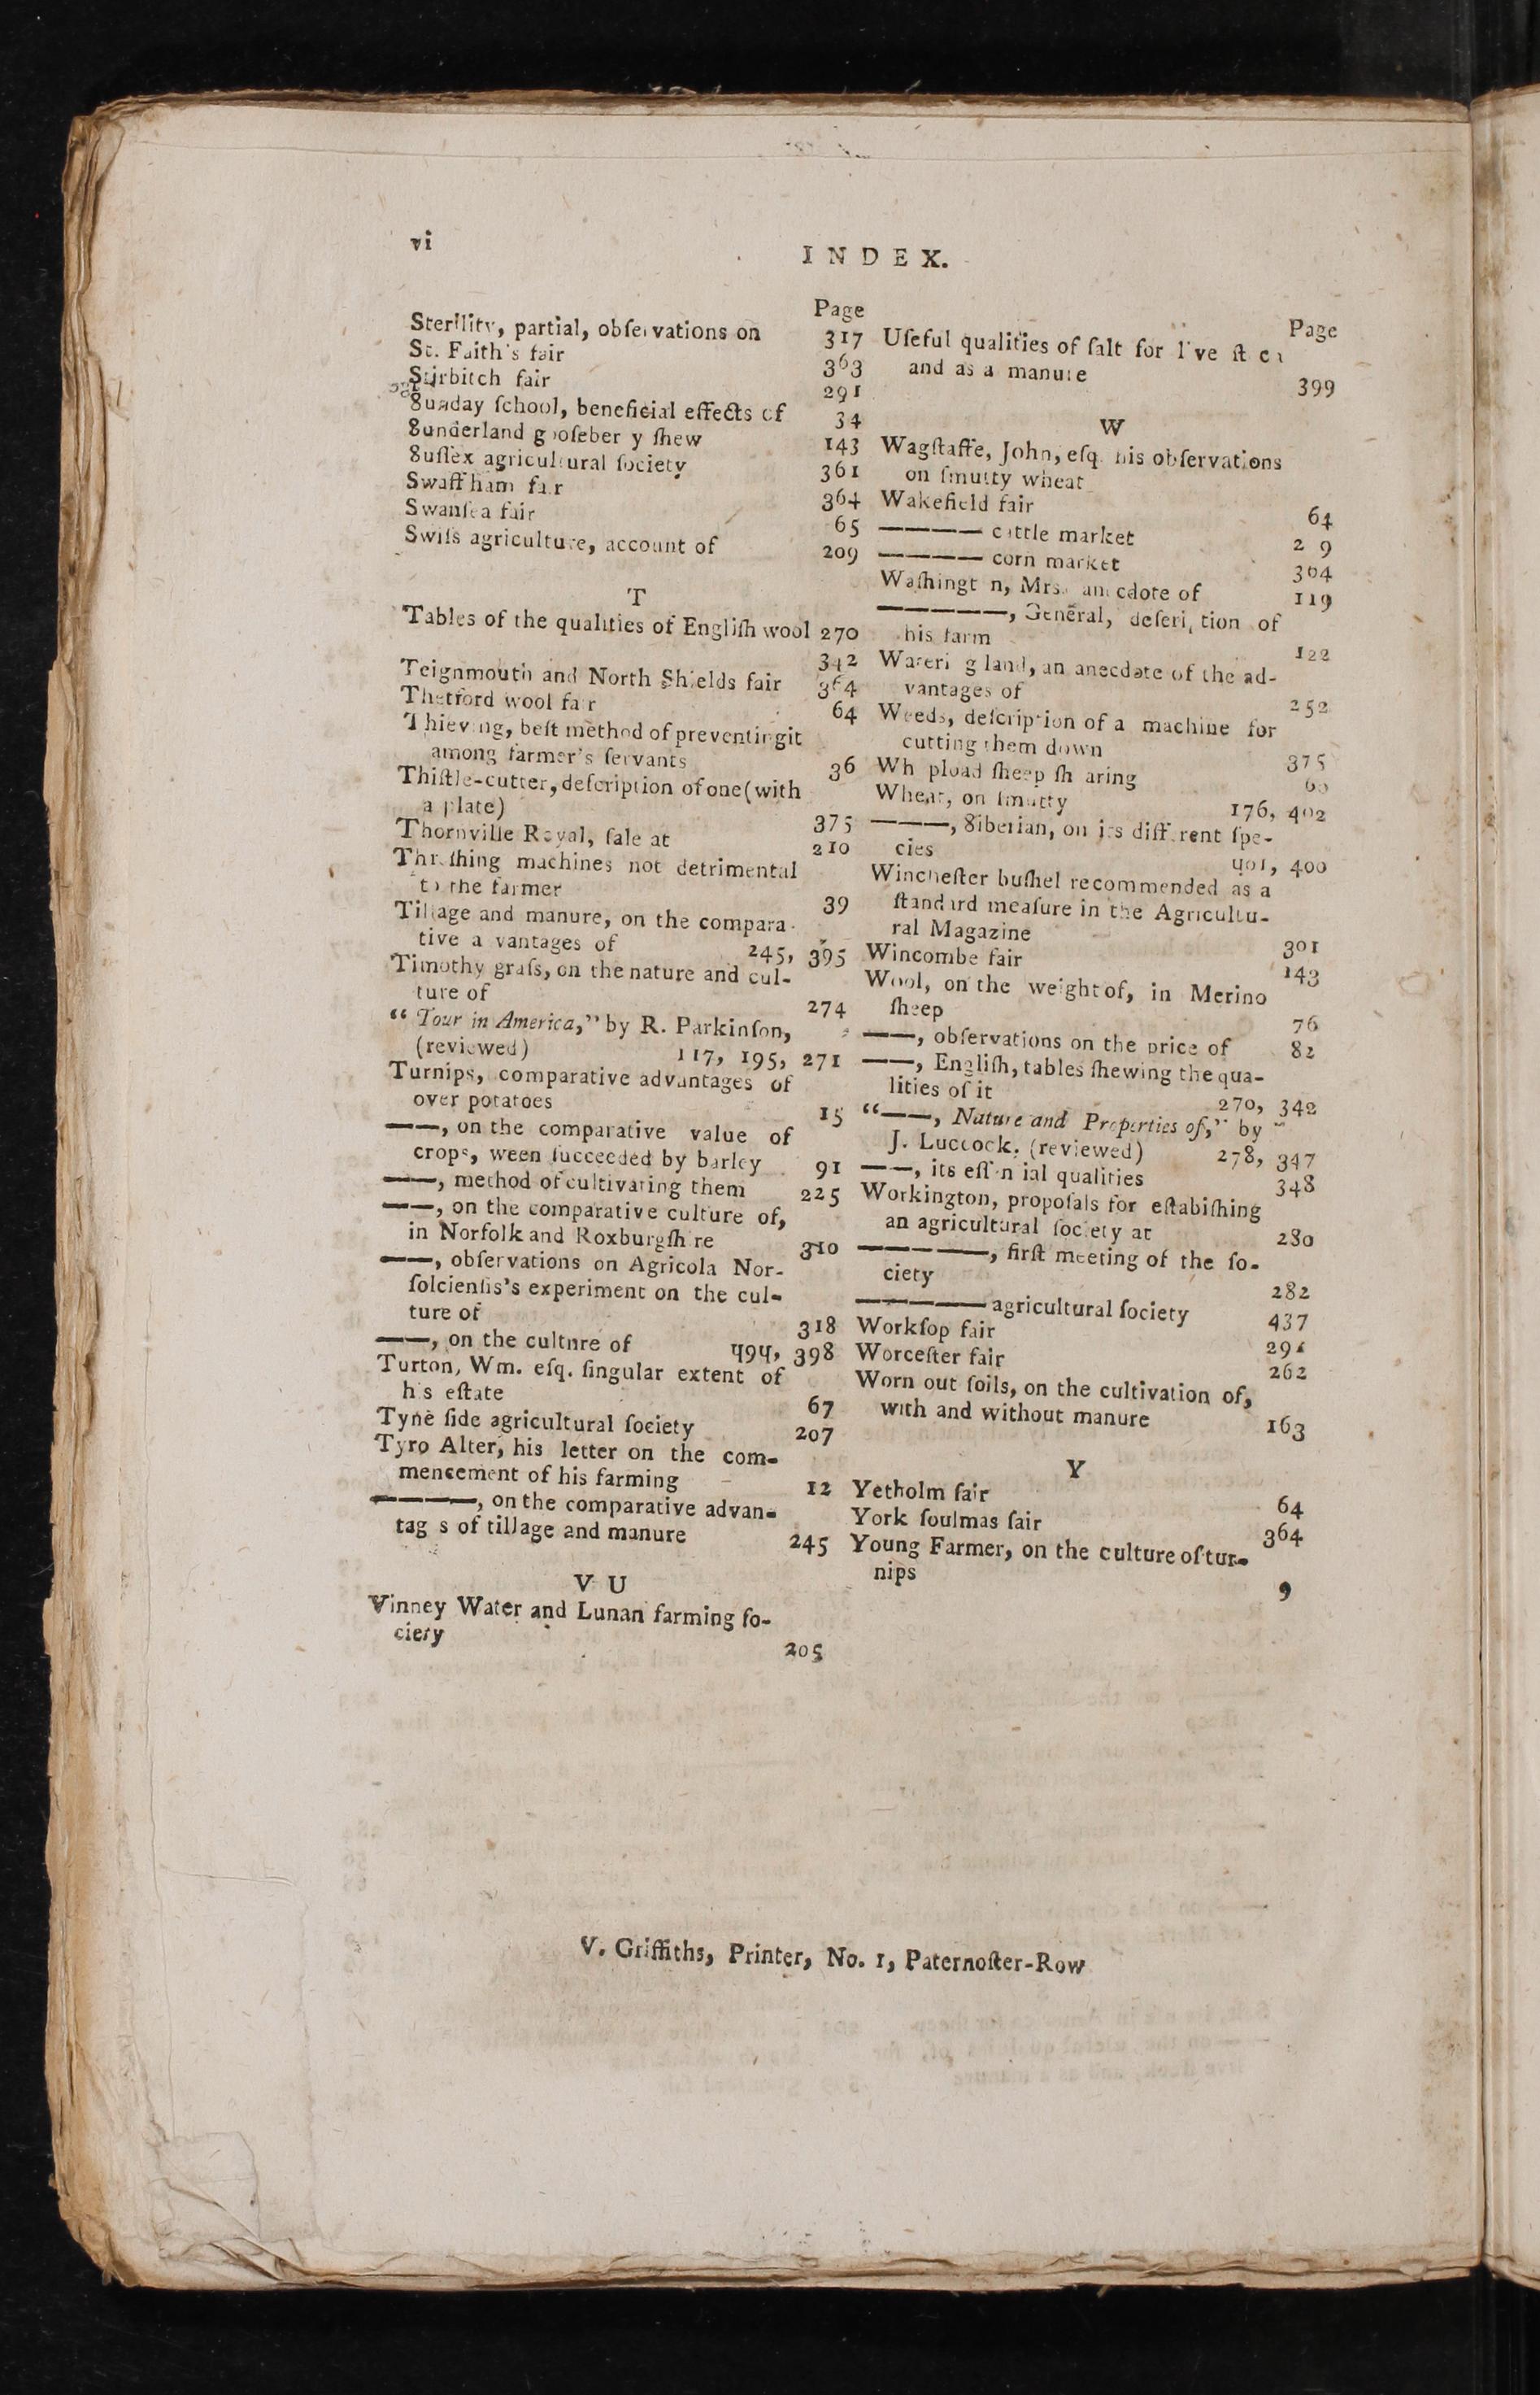 vi
INDEX.
Page
Sterility, partial, obſervations on 317
St. Faith's fair 363
Stirbitch fair 291
Sunday ſchool, beneficial effects of 34
Sunderland gooſeber y ſhew 143
Suſſex agricultural ſociety 361
Swaffham fair 364
Swanſea fair 65
Swiſs agriculture, account of 209
T
Tables of the qualities of Engliſh wool 270
342
Teignmouth and North Shields fair 364
Thetford wool fair 64
Thieving, beſt method of preventing it
among farmer's ſervants 36
Thiſtle-cutter, deſcription of one (with
a plate) 375
Thornville Royal, ſale at 210
Threſhing machines not detrimental
to the farmer 39
Tillage and manure, on the compara-
tive a vantages of 245, 395
Timothy graſs, on the nature and cul-
ture of 274
“ Tour in America,” by R. Parkinſon,
(reviewed) 117, 195, 271
Turnips, comparative advantages of
over potatoes 15
——, on the comparative value of
crops, ween ſucceeded by barley 91
——, method of cultivating them 225
——, on the comparative culture of,
in Norfolk and Roxburgſh re 310
——, obſervations on Agricola Nor-
folcienſis's experiment on the cul-
ture of 318
——, on the cultnre of 494, 398
Turton, Wm. eſq. ſingular extent of
h s eſtate 67
Tyne ſide agricultural ſociety 207
Tyro Alter, his letter on the com-
mencement of his farming 12
————, on the comparative advan-
tag s of tillage and manure 245
V U
Vinney Water and Lunan farming ſo-
ciety 205
Page
Uſeful qualities of ſalt for l ve ſt c
and as a manure 399
W
Wagſtaffe, John, eſq. his obſervations
on ſmutty wheat
Wakefield fair 64
———— cattle market 2 9
———— corn market 304
Waſhingt n, Mrs. anecdote of 119
—————, General, deſcri tion of
his farm 122
Wateri g land, an anecdote of the ad-
vantages of 252
Weeds, deſcription of a machine for
cutting them down 375
Wh pload ſheep ſh aring
Wheat, on ſmutty 176, 402
———, Siberian, on its different ſpe-
cies 401, 400
Wincheſter buſhel recommended as a
ſtandard meaſure in the Agricultu-
ral Magazine 301
Wincombe fair 143
Wool, on the weight of, in Merino
ſheep 76
——, obſervations on the price of 82
——, Engliſh, tables ſhewing the qua-
lities of it 270, 342
“——, Nature and Properties of,” by
J. Luccock. (reviewed) 278, 347
——, its eſſ n ial qualities 348
Workington, propoſals for eſtabiſhing
an agricultural ſociety at 280
—————, firſt meeting of the ſo-
ciety 282
————— agricultural ſociety 437
Workſop fair 291
Worceſter fair 262
Worn out ſoils, on the cultivation of,
with and without manure 163
Y
Yetholm fair 64
York ſoulmas fair 364
Young Farmer, on the culture of tur-
nips 9
V. Griffiths, Printer, No. 1, Paternoſter-Row